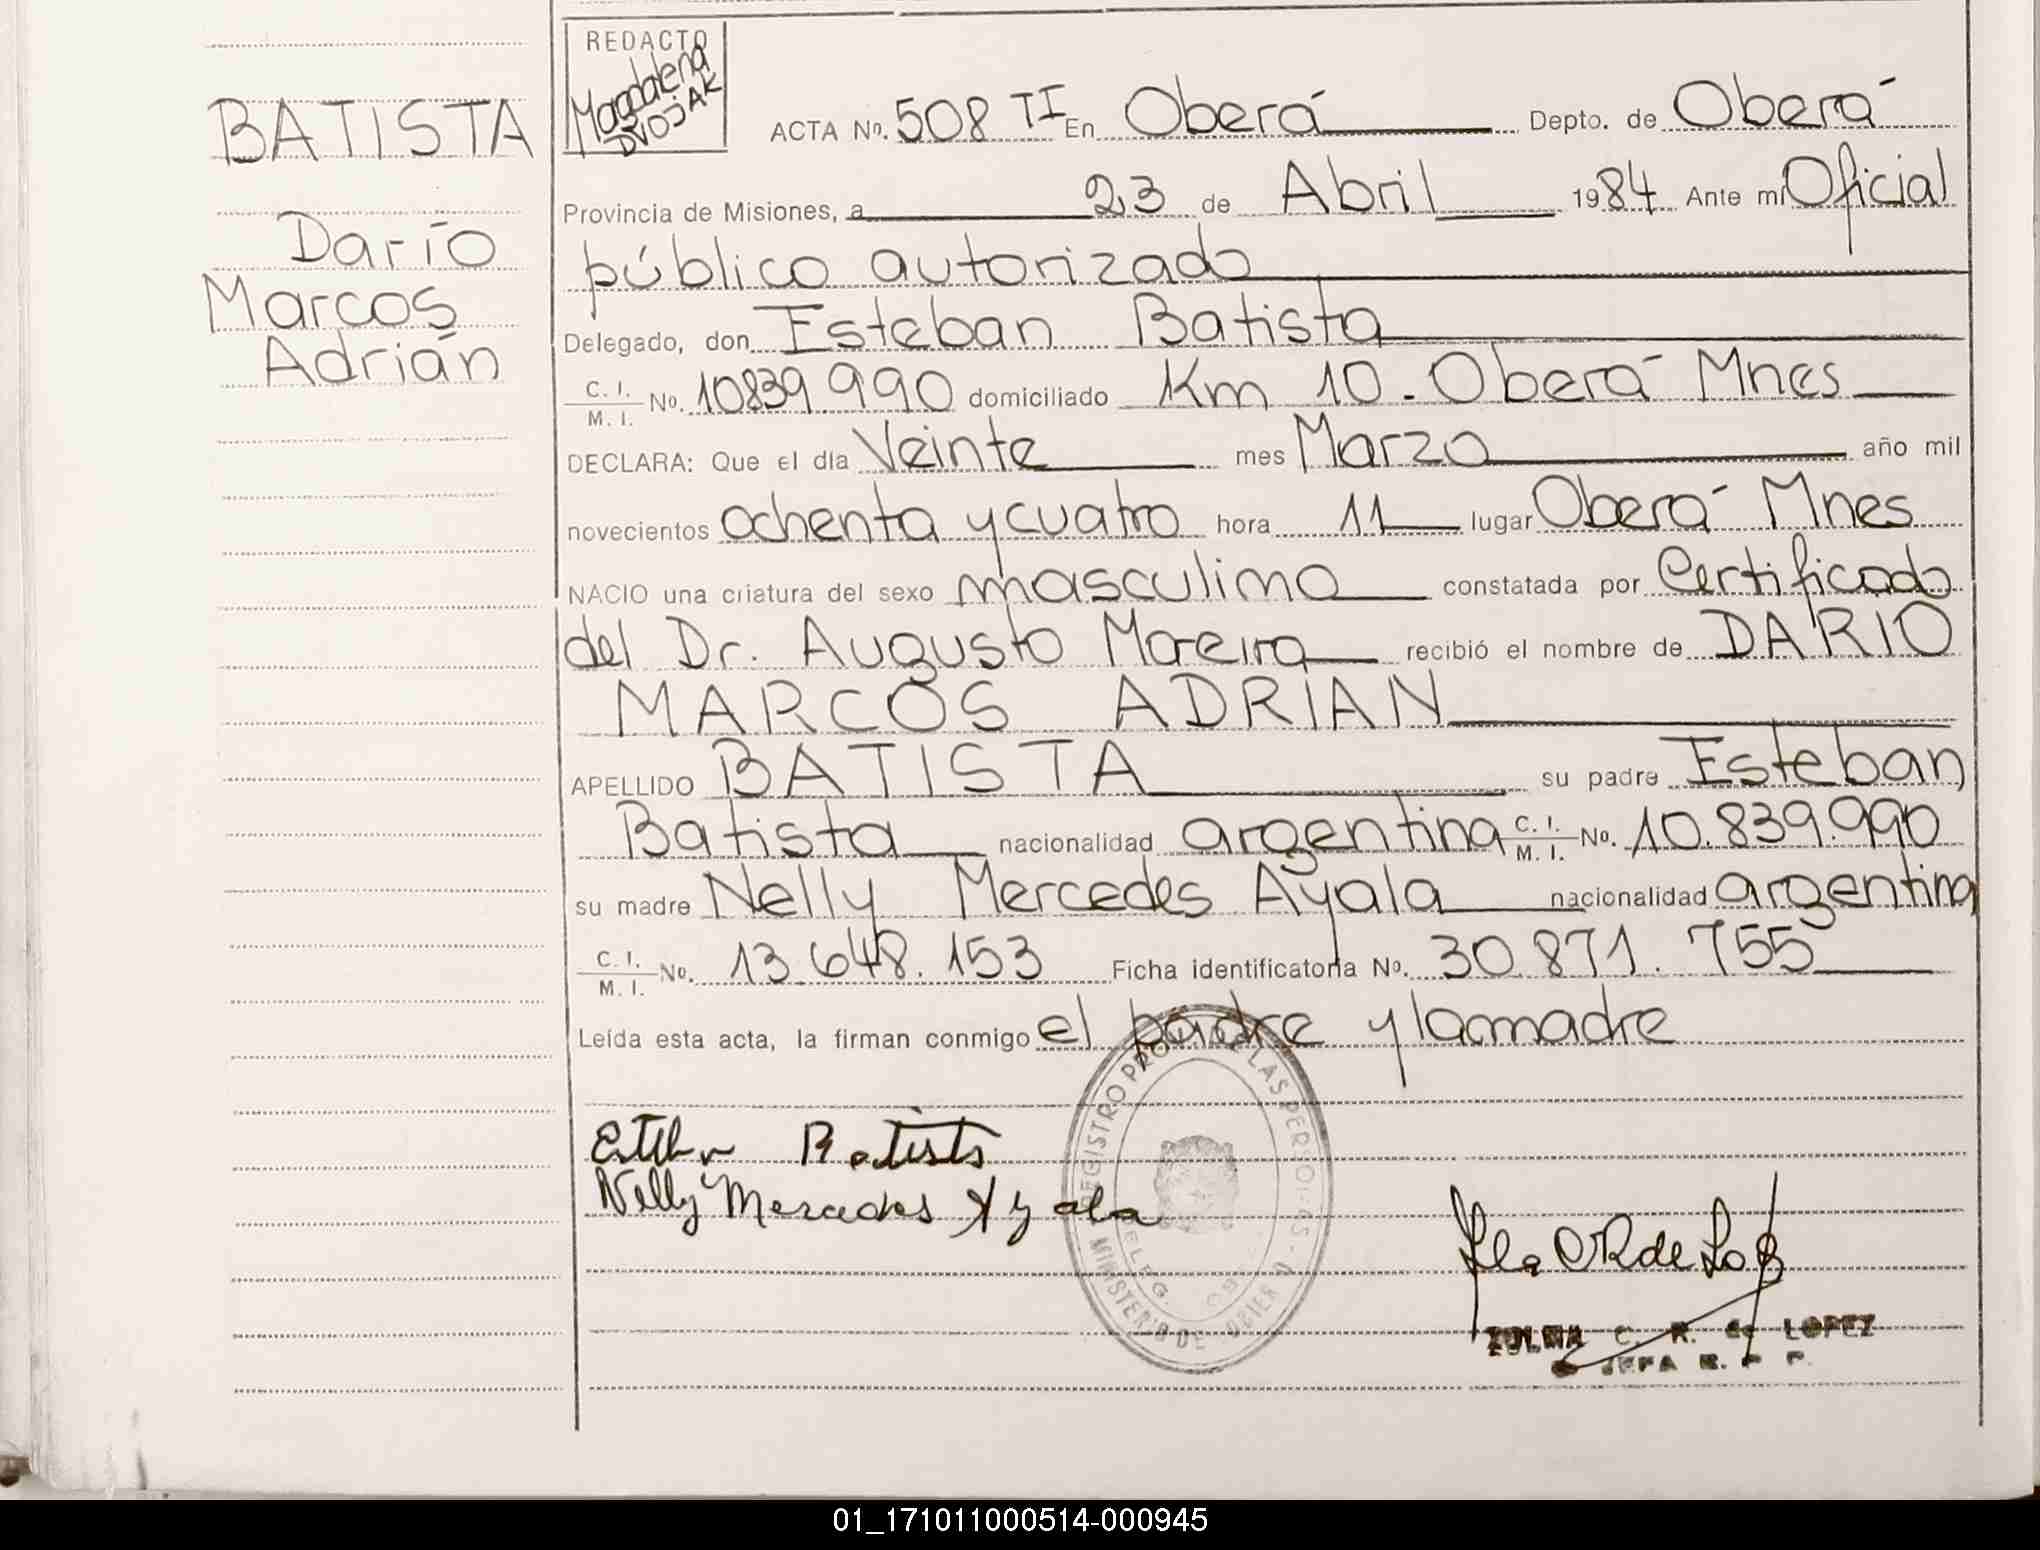 BATISTA
Darío
Marcos
Adrián
REDACTO
Magdalena
DVOJAK
ACTA No. 508 TI En Oberá Depto. de Oberá
Provincia de Misiones, a 23 de Abril 1984 Ante mí Oficial
público autorizado
Delegado, don Esteban Batista
C. I. M. I. No. 10839.990 domiciliado Km 10. Oberá Mnes
DECLARA: Que el día Veinte mes Marzo año mil
novecientos ochenta y cuatro hora 11 lugar Oberá Mnes
NACIO una criatura del sexo masculino constatada por Certificado
del Dr. Augusto Moreira recibió el nombre de DARIO
MARCOS ADRIAN
APELLIDO BATISTA su padre Esteban
Batista nacionalidad argentina C. I. M. I. No. 10.839.990
su madre Nelly Mercedes Ayala nacionalidad argentina
C. I. M. I. No. 13.648.153 Ficha identificatoria No. 30.871.755
Leída esta acta, la firman conmigo el padre y la madre
Batista
Nelly Mercedes Ayala
REGISTRO LAS PERSONAS
MINISTERIO DE
ZULMA C. R. de LOPEZ
JEFA R. P. P.
01_171011000514-000945